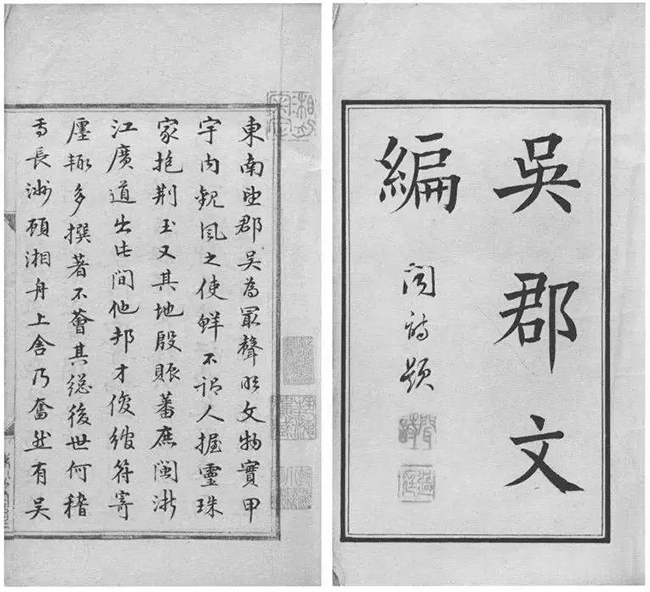 吳郡文
編
聞詩題
東南望郡吳為冣聲明文物實甲
宇內觀風之使鮮不謂人握靈珠
家抱荊玉又其地殷賑蕃庶閩浙
江廣道出其間他邦才俊綰符寄
廛輙多撰著不薈其總後世何稽
焉長洲顧湘舟上舍乃奮然有吳